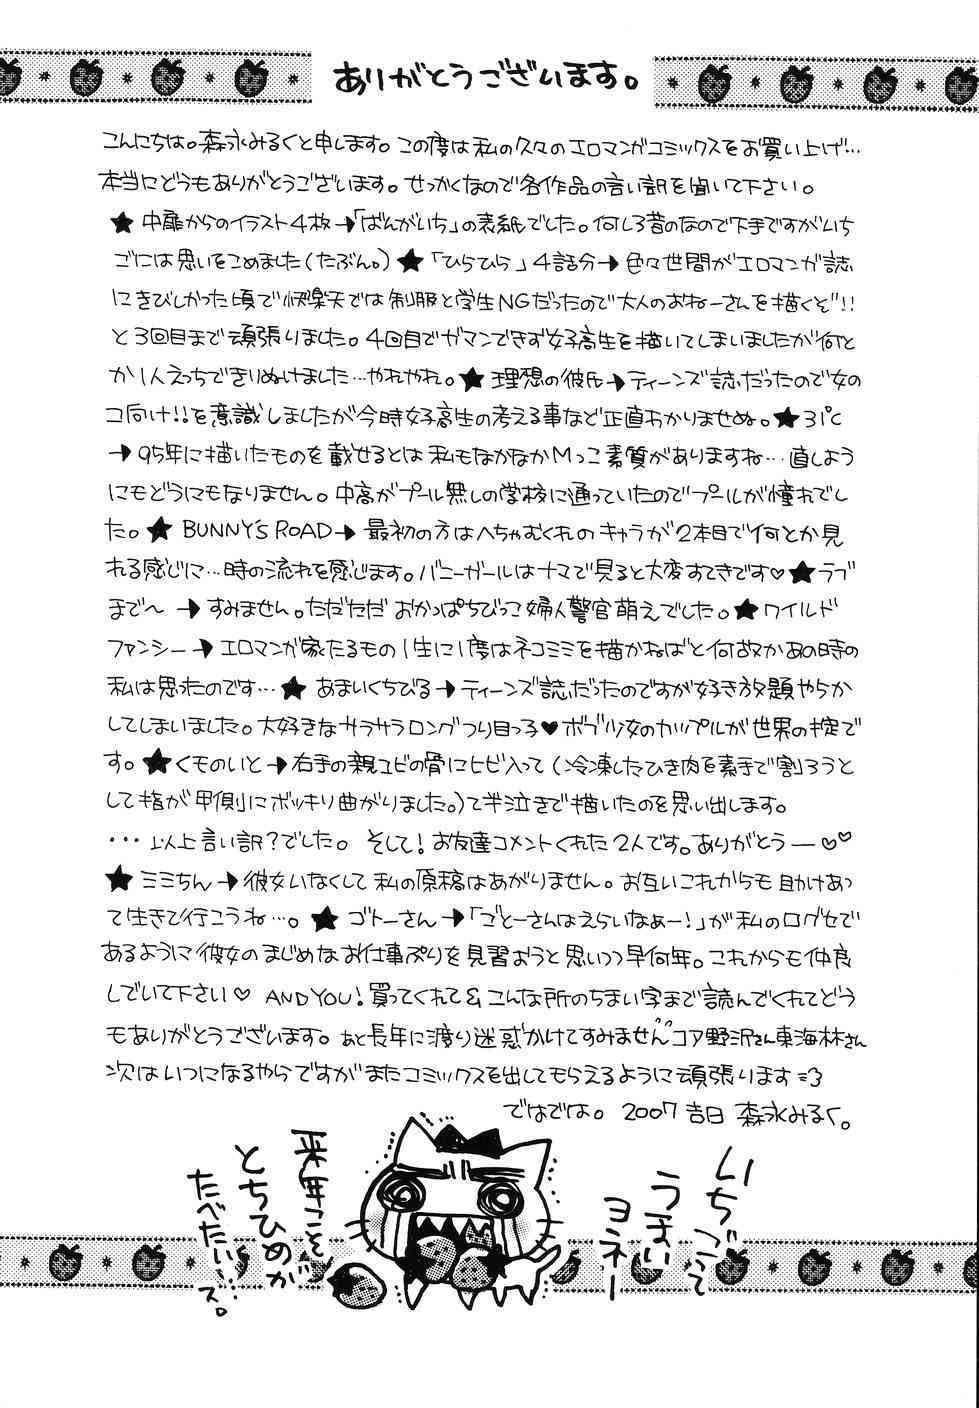 ありがとうございます。
こんにちは。森永みるくと申します。この度は私の久々のエロマンガコミックスをお買い上げ…
本当にどうもありがとうございます。せっかくなので各作品の言い訳を聞いて下さい。
★中扉からのイラスト4枚→「ばんがいち」の表紙でした。何しろ昔のなので下手ですがいち
ごには思いをこめました(たぶん。)★「ひらひら」4話分→色々世間がエロマンガ誌
にきびしかった頃で快楽天では制服と学生NGだったので大人のおねーさんを描くぞ!!
と3回目まで頑張りました。4回目でガマンできず女子高生を描いてしまいましたが何と
か1人えっちできりぬけました…やれやれ。★理想の彼氏→ティーンズ誌だったので女の
コ向け!!を意識しましたが今時女子高生の考える事など正直わかりませぬ。★31℃
→95年に描いたものを載せるとは私もなかなかMっこ素質がありますね…直しよう
にもどうにもなりません。中高がプール無しの学校に通っていたのでプールが憧れでし
た。★BUNNY'S ROAD→最初の方はへちゃむくれのキャラが2本目で何とか見
れる感じに…時の流れを感じます。バニーガールはナマで見ると大変すてきです♡★ラブ
まで〜→すみません。ただただおかっぱちびっこ婦人警官萌えでした。★ワイルド
ファンシー→エロマンガ家たるもの1生に1度はネコミミを描かねばと何故かあの時の
私は思ったのです…★あまいくちびる→ティーンズ誌だったのですが好き放題やらか
してしまいました。大好きなサラサラロングつり目っ子♥ボブ少女のカップルが世界の掟で
す。★くものいと→右手の親ユビの骨にヒビ入って(冷凍したひき肉を素手で割ろうと
して指が甲側にボッキリ曲がりました。)て半泣きで描いたのを思い出します。
…以上言い訳?でした。そして!お友達コメントくれた2人です。ありがとうー♡♡
★ミミちん→彼女いなくして私の原稿はあがりません。お互いこれからも助けあっ
て生きて行こうね…。★ゴトーさん→「ごとーさんはえらいなぁー!」が私のログセで
あるように彼女のまじめなお仕事ぷりを見習おうと思いつつ早何年。これからも仲良
しでいて下さい♡ AND YOU!買ってくれて&こんな所のちまい字まで読んでくれてどう
もありがとうございます。あと長年に渡り迷惑かけてすみません コア野沢さん東海林さん
次はいつになるやらですがまたコミックスを出してもらえるように頑張ります
ではでは。2007 吉日 森永みるく。
いちごって
うまい
ヨネー
来年こそ
とちひめが
たべたい…ス。